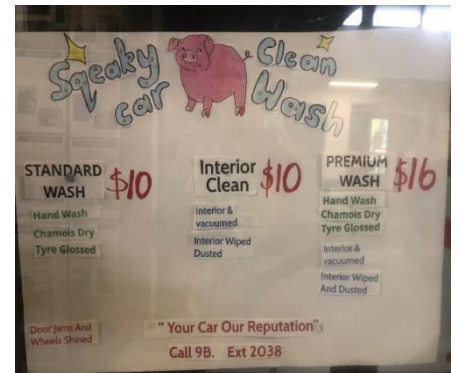 Sqeaky Clean
car Wash
STANDARD
WASH
$10
Hand Wash
Chamois Dry
Tyre Glossed
Interior
Clean
$10
Interior &
vacuumed
Interior Wiped
Dusted
PREMIUM
WASH
$16
Hand Wash
Chamois Dry
Tyre Glossed
Interior &
vacuumed
Interior Wiped
And Dusted
Door Jams And
Wheels Shined
" Your Car Our Reputation"
Call 9B. Ext 2038